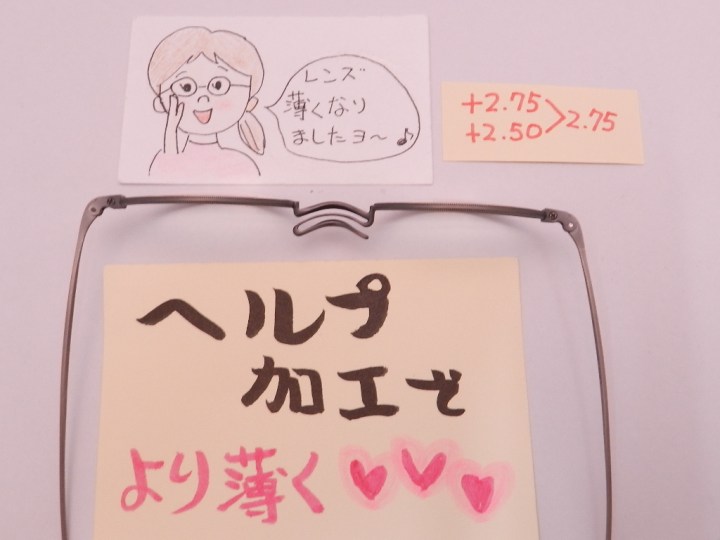 レンズ
薄くなり
ましたヨ〜♪
+2.75
+2.50
>2.75
ヘルプ
加工で
より薄く